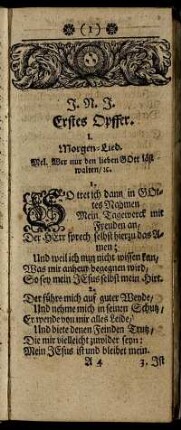 ( 1 )
J. N. J.
Erstes Opffer.
I.
Morgen-Lied.
Mel. Wer nur den lieben GOtt läst
walten/ ꝛc.
1.
SO tret ich dann in GOt-
tes Nahmen
Mein Tagewerck mit
Freuden an,
Der HErr sprech selbst hierzu das A-
men;
Und weil ich nun nicht wissen kan,
Was mir anheut begegnen wird,
So sey mein JEsus selbst mein Hirt.
2.
Der führe mich auf guter Weyde,
Und nehme mich in seinen Schutz,
Er wende von mir alles Leide,
Und biete denen Feinden Trutz,
Die mir vielleicht zuwider seyn:
Mein JEsus ist und bleibet mein.
A 4 3. Ist